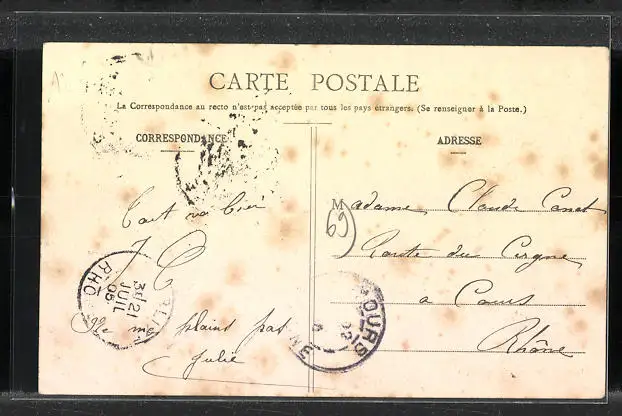 CARTE POSTALE
La Correspondance au recto n'est pas acceptée par tous les pays étrangers. (Se renseigner à la Poste.)
CORRESPONDANCE
ADRESSE
Tout va bien
Je me plains pas
Julie
Madame Claude Canet
Route du Cergne
a Cours
Rhône
69
3E 21
JUIL
05
RHO
COURS